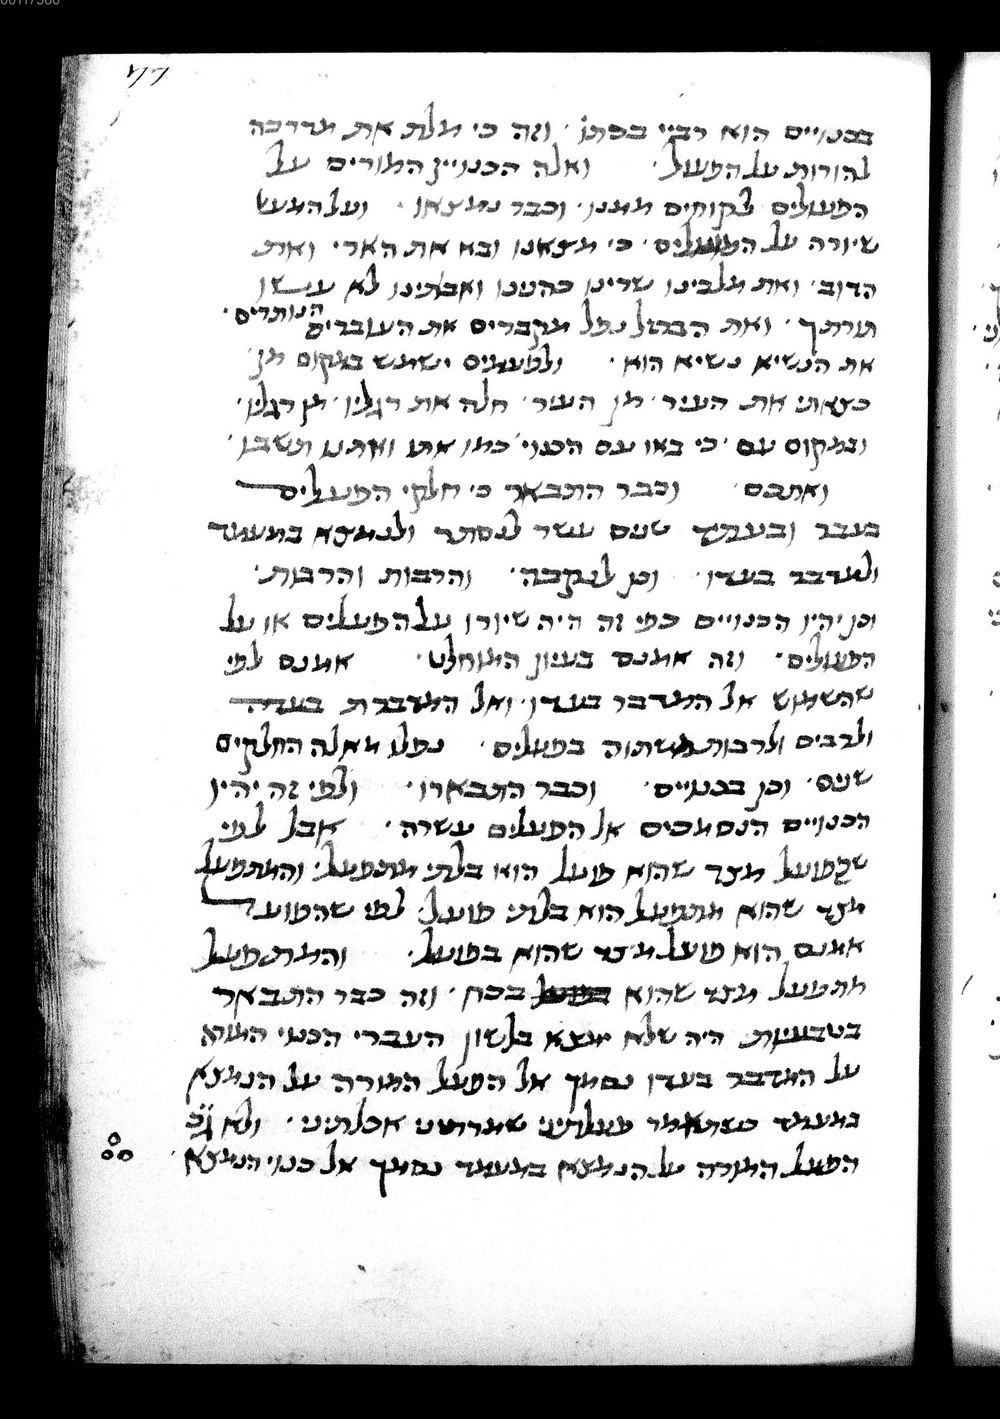 בכנויים הוא רביי בפתו׳ וזה כי מלת את מדרכה
להורות על הפעול׳ ואלה הכנויין המורים על
הפעולים לקוחים ממנו׳ וכבר נמצאו׳ ועל המעט
שיורה על הפועלים׳ כי מצאנו ובא את הארי׳ ואת
הדוב׳ ואת מלכינו שרינו כהנינו ואבתינו לא עשו
תורתך׳ ואת הברזל נפל מקברים את העוברים הנותרים׳
את הנשיא נשיא הוא׳ ולפעמים ישמש במקום מן׳
כצאתי את העיר׳ מן העיר׳ חלה את רגליו׳ מן רגליו׳
ובמקום עם׳ כי באו עם הכנוי כמו אתו ואתנו תשבו׳
ואתכם׳ וכבר התבאר כי חלקי הפעלים
בעבר ובעתיד שנים עשר לנסתר ולנמצא במעמד
ולמדבר בעדו׳ וכן לנקבה׳ והרבות והרבות׳
וכן יהיו הכנויים כפי זה היה שיורו על הפעלים או על
הפעולים׳ וזה אמנם בעיון המוחלט׳ אמנם לפי
שהשמוש אל המדבר בעדו׳ ואל המדברת בעדה
ולרבים ולרבות משתוה בפעלים׳ נפלו מאלה החלקים
שנים׳ וכן בכנויים׳ וכבר התבארו׳ ולפי זה יהיו
הכנויים הנסמכים אל הפעלים עשרה׳ אבל לפי
שהפועל מצד שהוא פועל הוא בלתי מתפעל׳ והמתפעל
מצד שהוא מתפעל הוא בלתי פועל׳ לפי שהפועל
אמנם הוא פועל מצד שהוא בפועל׳ והמתפעל
מתפעל מצד שהוא בכח׳ וזה כבר התבאר
בטבעיות היה שלא ימצא בלשון העברי הכנוי המורא
על המדבר בעדו נסמך אל הפעל המורה על הנמצא
במעמד כשתאמר אכלתיני׳ ולא ג״כ
הפעל המורה על הנמצא במעמד נסמך אל כנוי הנמצא׳